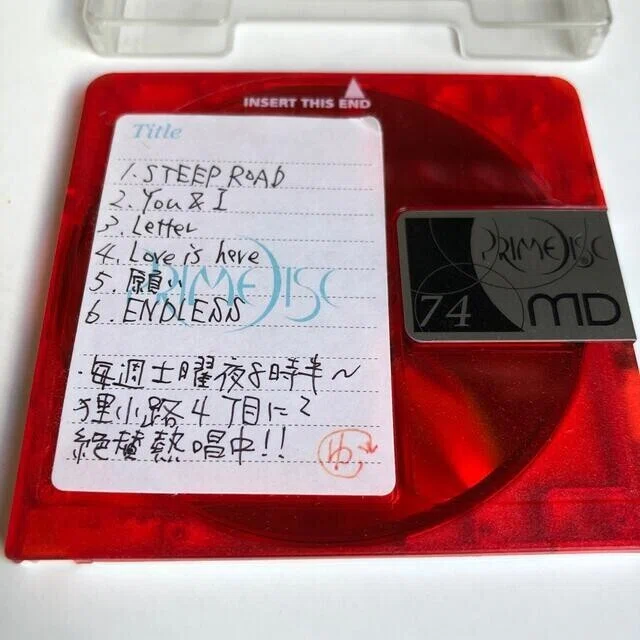 INSERT THIS END
Title
1. STEEP ROAD
2. You & I
3. Letter
4. Love is here
5. 願い
6. ENDLESS
・毎週土曜夜8時半〜
狸小路4丁目にて
絶賛熱唱中!!
PRIME DISC
PRIME DISC
74 MD